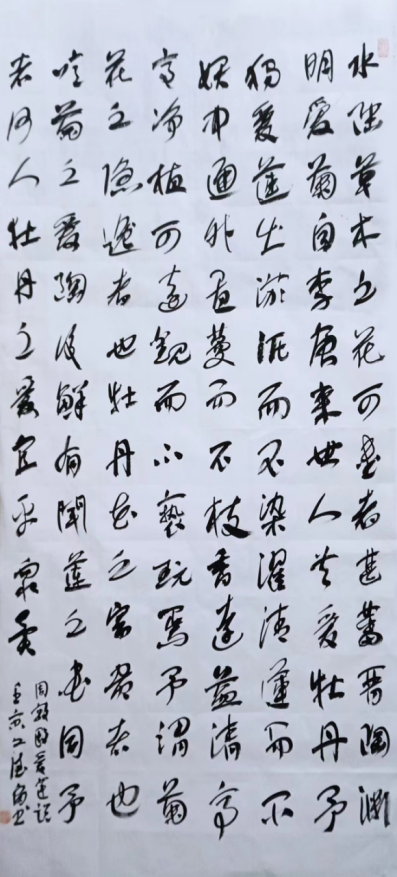 水陸草木之花可愛者甚蕃晉陶淵
明愛菊自李唐來世人甚愛牡丹予
獨愛蓮出淤泥而不染濯清漣而不
妖中通外直蔓而不枝香遠益清亭
亭淨植可遠觀而不褻玩焉予謂菊
花之隱逸者也牡丹花之富貴者也
噫菊之愛陶後鮮有聞蓮之愛同予
者何人牡丹之愛宜乎衆矣
周敦頤愛蓮說